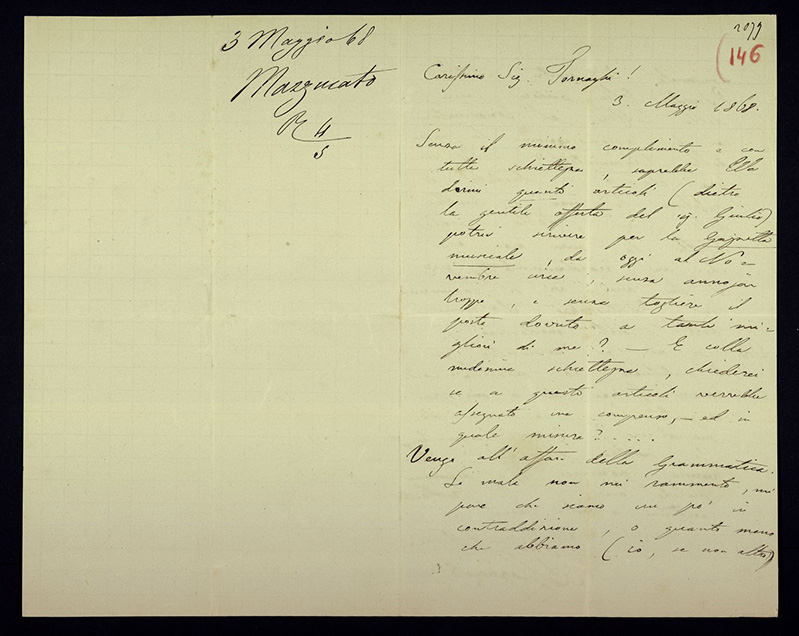 3 Maggio 68
Mazzucato
R 4/5
2099
(146
Carissimo Sig. Tornaghi!
3. Maggio 1868.
Senza il minimo complimento e con
tutta schiettezza, saprebbe Ella
dirmi quanti articoli (dietro
la gentile offerta del sig. Giulio)
potrei scrivere per la Gazzetta
musicale, da oggi al No=
vembre circa, senza annojar
troppo, e senza togliere il
posto dovuto a tanti mi=
gliori di me? — E colla
medesima schiettezza, chiederei
se a questi articoli verrebbe
assegnato un compenso, — ed in
quale misura?....
Vengo all'affare della Grammatica.
Se male non mi rammento, mi
pare che siamo un po' in
contraddizione, o quanto meno
che abbiamo (io, se non altro)